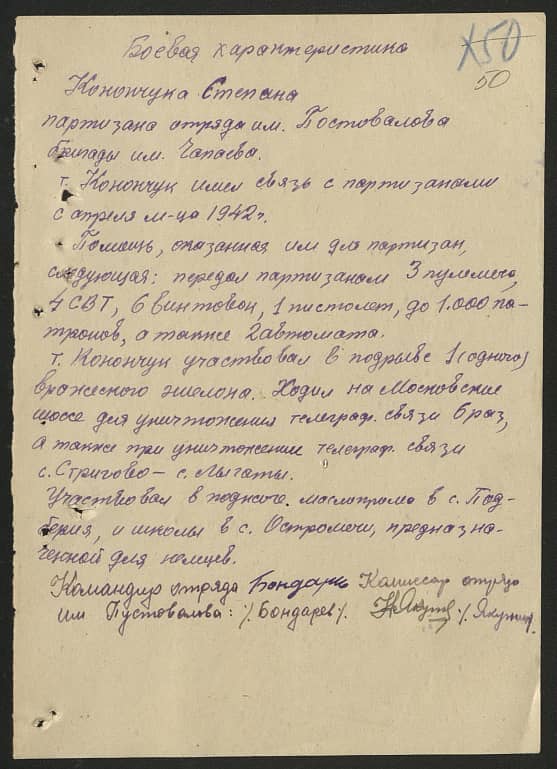 50
50
Боевая характеристика
Конончука Степана
партизана отряда им. Постовалова
бригады им. Чапаева.
т. Конончук имел связь с партизанами
с апреля м-ца 1942 г.
Помощь, оказанная им для партизан,
следующая: передал партизанам 3 пулемета,
4 СВТ, 6 винтовок, 1 пистолет, до 1.000 па-
тронов, а также 2 автомата.
т. Конончук участвовал в подрыве 1 (одного)
вражеского эшелона. Ходил на Московские
шоссе для уничтожения телеграф. связи 6 раз,
а также при уничтожении телеграф. связи
с. Стригово – с. Лыгаты.
Участвовал в поджоге маслопрома в с. Под-
берия, и школы в с. Остромечи, предназна-
ченной для немцев.
Командир отряда Бондарь Комиссар отряда
им. Пустовалова: /. Бондарев /. /. Якунин